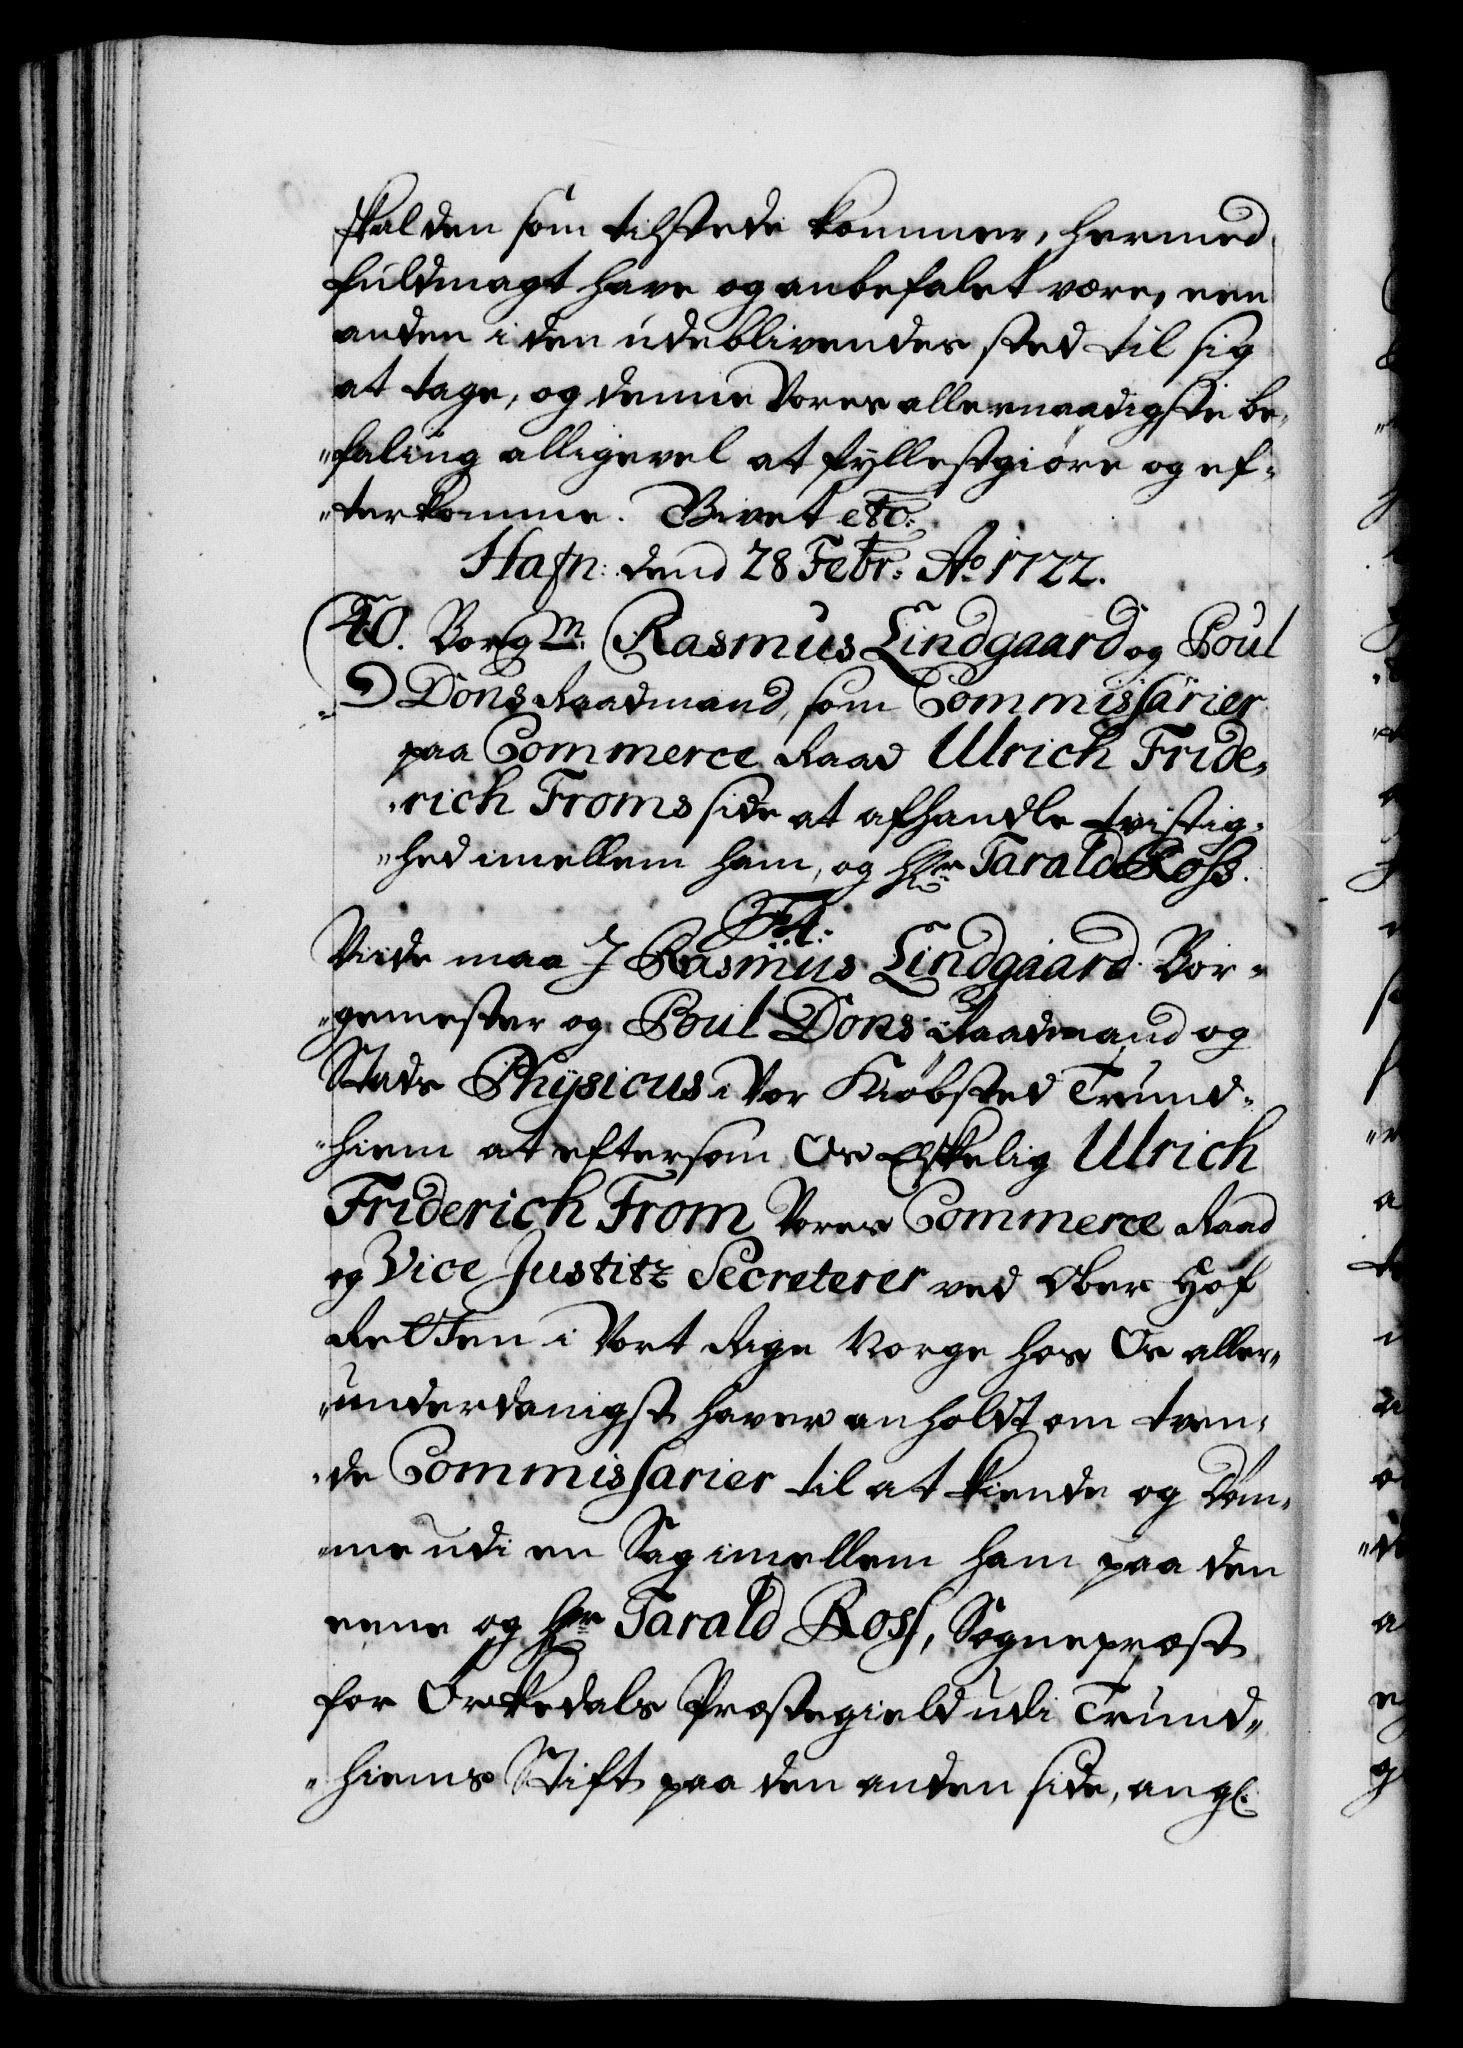 skal den som tilstede kommer, hermed
fuldmagt have og anbefalet være, een
anden i den udeblivendes sted til sig
at tage, og denne Vores allernaadigste be-
"faling alligevel at fyllestgiøre og ef-
"terkomme. Givet etc:
Hafn: dend 28 Febr: Ao 1722.
40. Borgm: Rasmus Lindgaard og Poul
Dons Raadmand, som Commissarier
paa Commerce Raad Ulrich Fride-
"rich Froms side at afhandle tvistig-
"hed imellem ham, og Hr Tarald Ross.
F. 4.
Viide maa J Rasmus Lindgaard Bor-
"gemester og Poul Dons Raadmand og
Stads Physicus i Vor Kiøbsted Trund-
"hiem at eftersom Os Elskelig Ulrich
Friderich From Vores Commerce Raad
og Vice Justitz Secreterer ved Ober Hof
Retten i Vort Rige Norge hos Os aller-
"underdanigst haver anholdt om tven-
"de Commissarier til at kiende og døm-
"me udi en Sag imellem ham paa den
eene og Hr Tarald Ross, Sognepræst
for Orckedals Præstegield udi Trund-
"hiems Stift paa den anden side, angl: